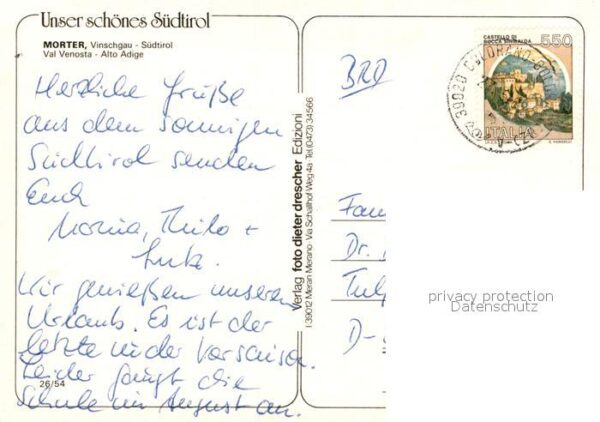 Unser schönes Südtirol
MORTER, Vinschgau - Südtirol
Val Venosta - Alto Adige
Herzliche Grüße
aus dem sonnigen
Südtirol senden
Euch
Thilo +
Wir genießen unseren
Urlaub. Es ist der
letzte in der Vorsaison.
Leider fängt die
Schule im August an.
26/54
Verlag foto dieter drescher Edizioni
I-39012 Meran Merano · Via Schallhof Weg 4a · Tel. (0473) 34566
BRD
CASTELLO DI
ROCCA SINIBALDA
550
ITALIA
39020
Fam
Dr.
Tulp
D-
privacy protection
Datenschutz